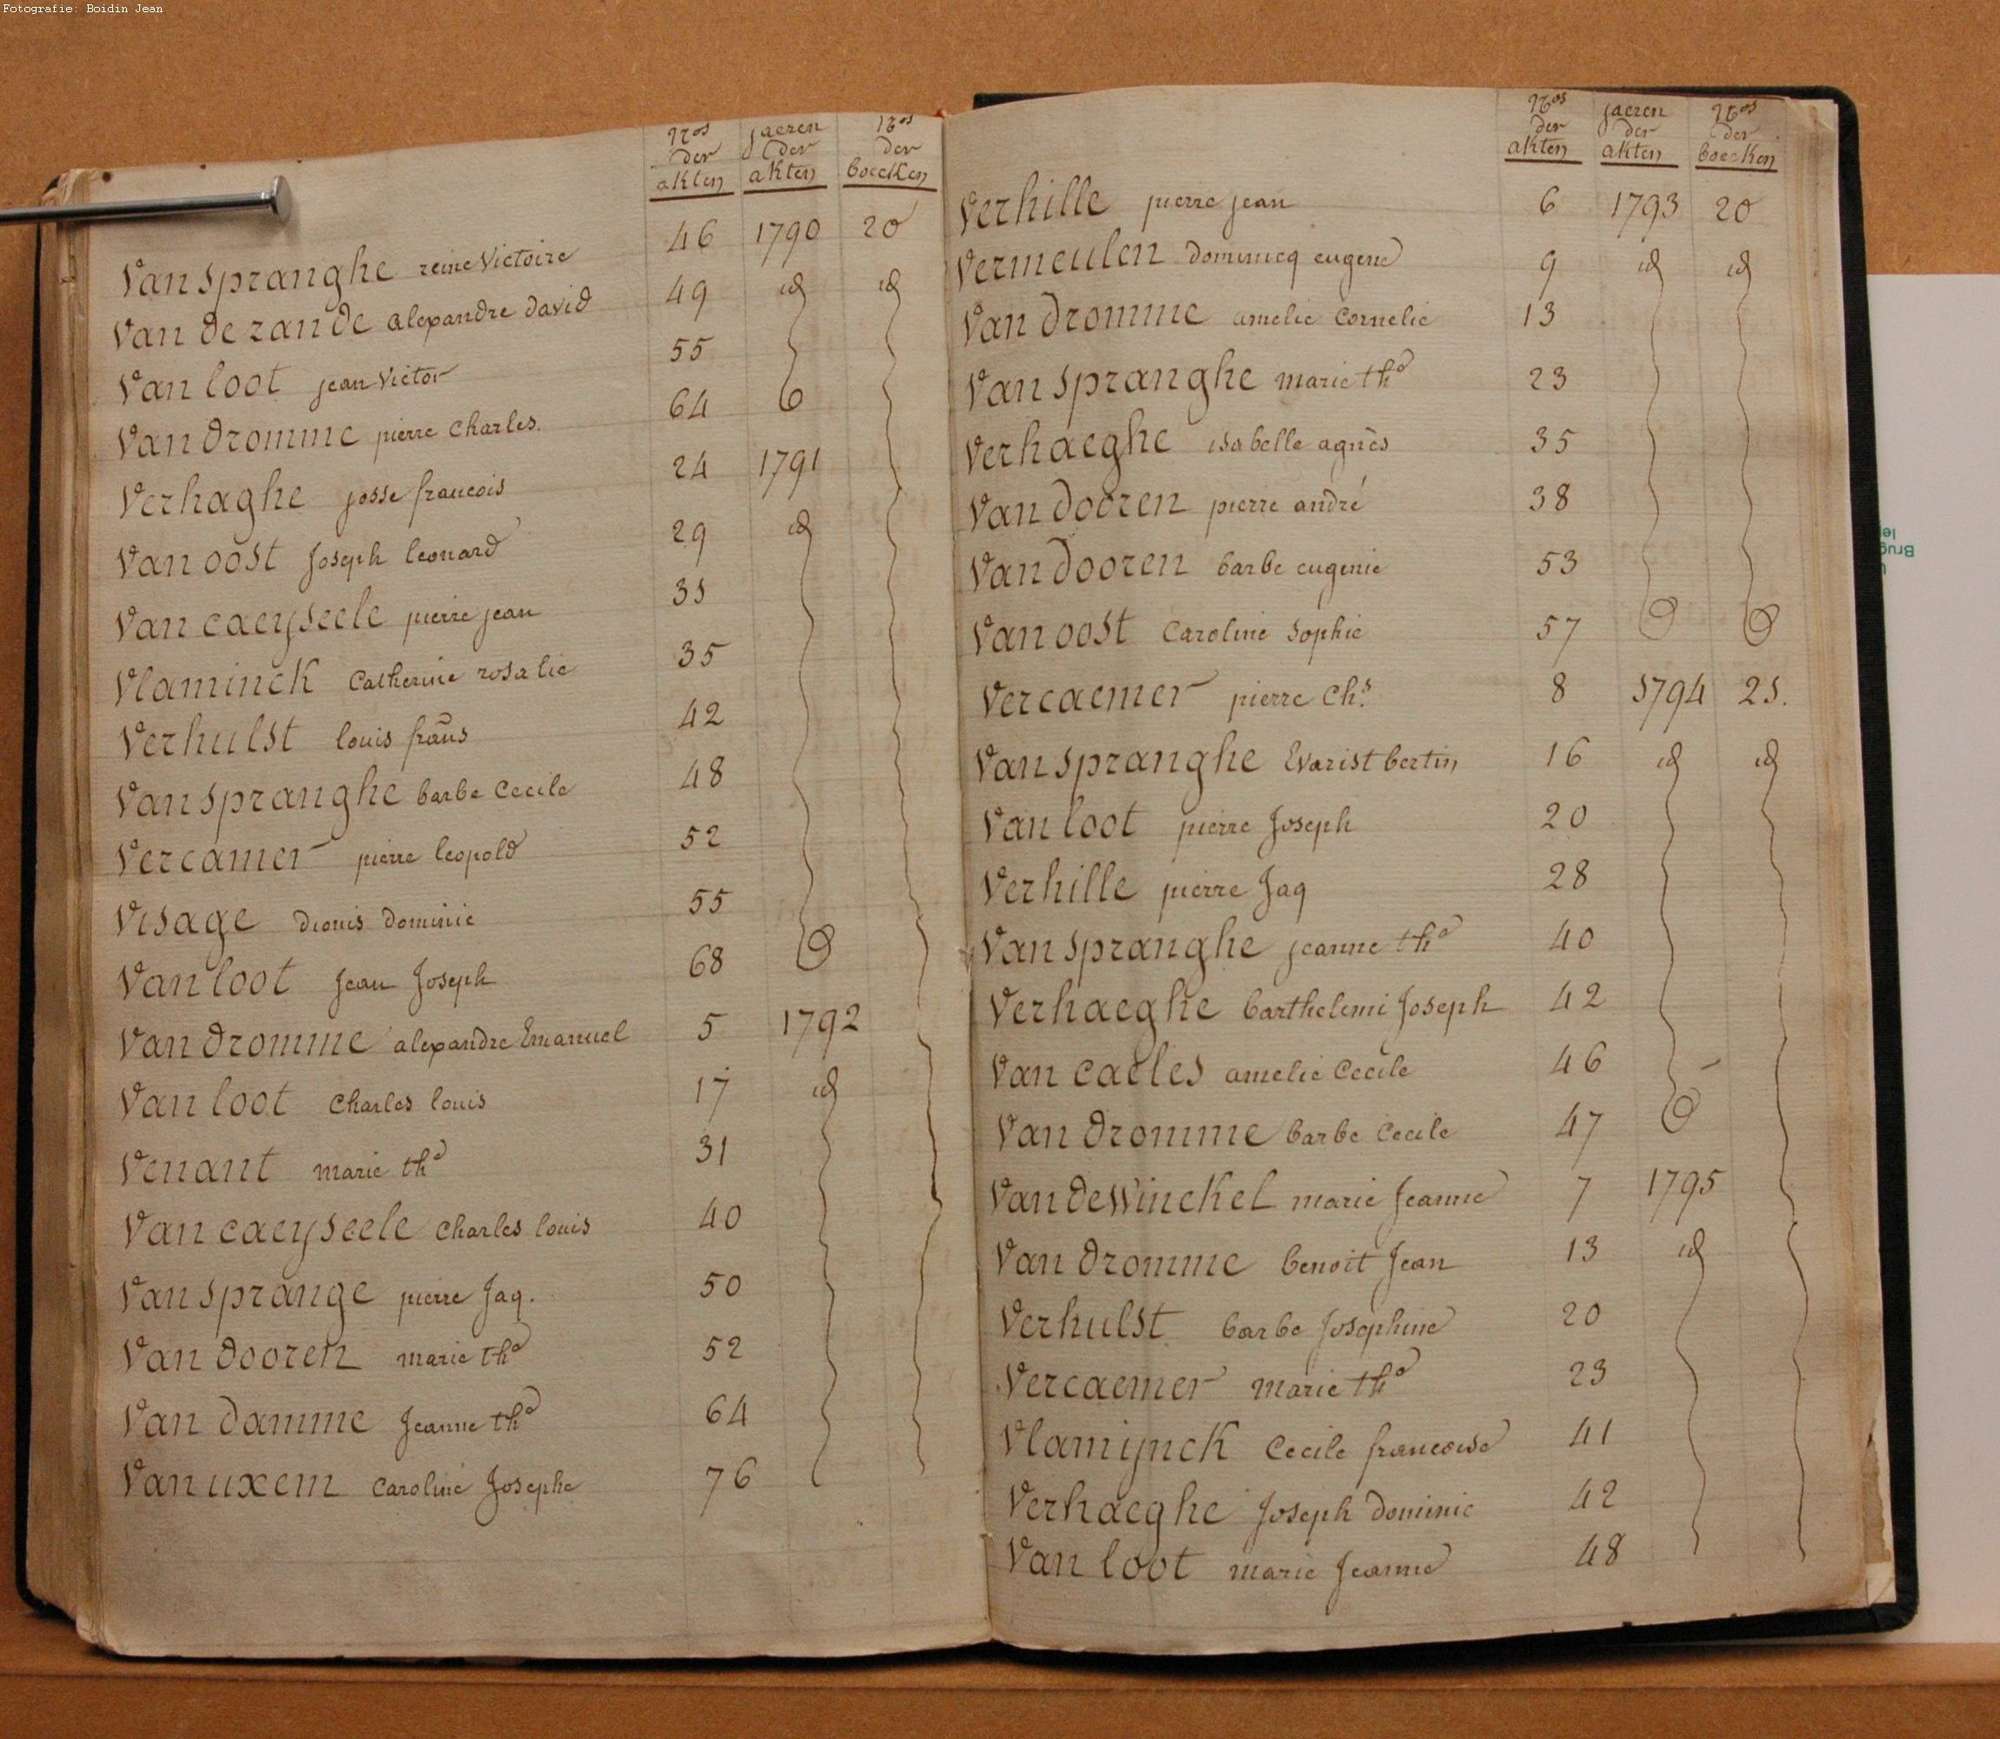 Fotografie: Boidin Jean
Nos der akten jaeren der akten Nos der boecken
Van Spranghe reine Victoire 46 1790 20
Van de zande alexandre david 49 id id
Van loot jean Victor 55
Van dromme pierre Charles. 64
Verhaghe josse francois 24 1791
Van oost Joseph leonard 29 id
Van caeyseele pierre jean 31
Vlaminck Catherine rosalie 35
Verhulst louis frans 42
Van Spranghe barbe Cecile 48
Vercamer pierre leopold 52
Visage dionis dominic 55
Van loot Jean Joseph 68
Van dromme alexandre Emanuel 5 1792
Van loot Charles louis 17 id
Venant marie the 31
Van caeyseele Charles louis 40
Van Sprange pierre Jaq. 50
Van dooren marie the 52
Van damme Jeanne the 64
Van uxem Caroline Josephe 76
Nos der akten jaeren der akten Nos der boecken
Verhille pierre jean 6 1793 20
Vermeulen dominicq eugene 9 id id
Van dromme amelie Cornelie 13
Van Spranghe marie the 23
Verhaeghe isabelle agnès 35
Van dooren pierre andré 38
Van dooren barbe eugenie 53
Van oost Caroline Sophie 57
Vercaemer pierre Chs. 8 1794 21.
Van Spranghe Evarist bertin 16 id id
Van loot pierre Joseph 20
Verhille pierre Jaq 28
Van Spranghe jeanne the 40
Verhaeghe barthelemi Joseph 42
Van caeles amelie Cecile 46
Van dromme barbe Cecile 47
Van de Winckel marie Jeanne 7 1795
Van dromme benoit Jean 13 id
Verhulst barbe Josephine 20
Vercaemer marie the 23
Vlamijnck Cecile francoise 41
Verhaeghe Joseph dominic 42
Van loot marie Jeanne 48